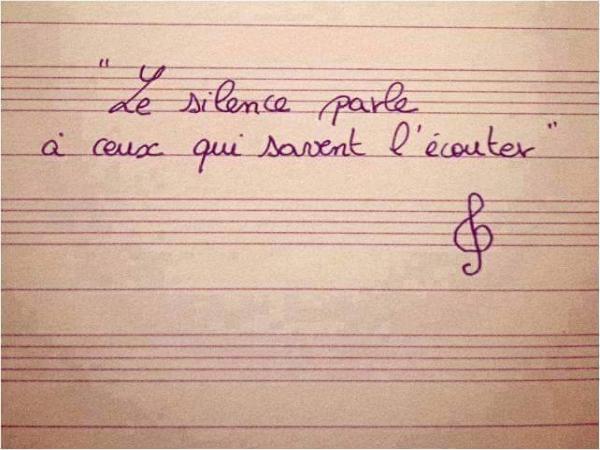 "Le silence parle
à ceux qui savent l'écouter"